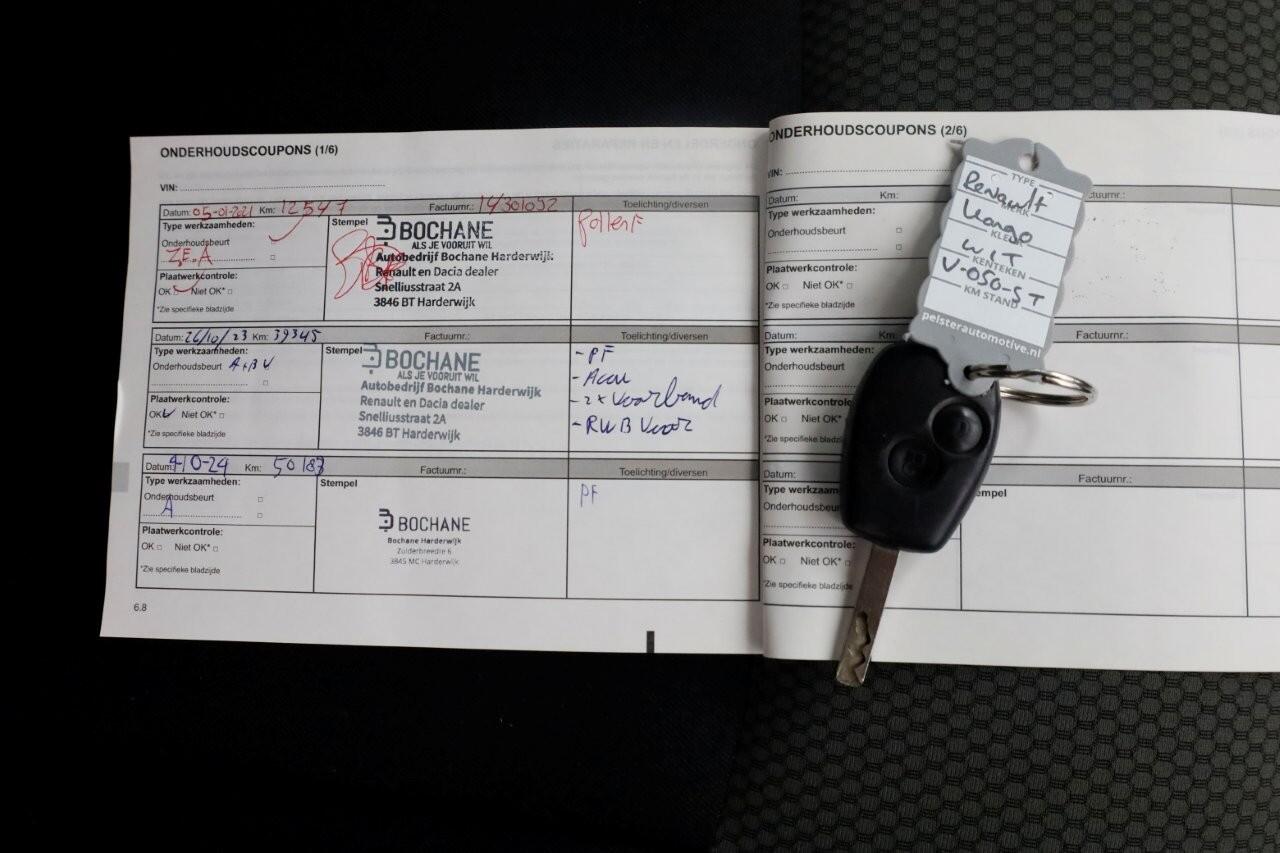 ONDERHOUDSCOUPONS (1/6)
VIN:
Datum: 05-01-2021 Km: 12547 Factuurnr.: 14301052 Toelichting/diversen
Type werkzaamheden:
Onderhoudsbeurt
Z.E.A
Plaatwerkcontrole:
OK Niet OK*
*Zie specifieke bladzijde
Stempel
BOCHANE
ALS JE VOORUIT WIL
Autobedrijf Bochane Harderwijk
Renault en Dacia dealer
Snelliusstraat 2A
3846 BT Harderwijk
PollenF
Datum: 26/10/23 Km: 39345 Factuurnr.: Toelichting/diversen
Type werkzaamheden:
Onderhoudsbeurt A+BV
Plaatwerkcontrole:
OK Niet OK*
*Zie specifieke bladzijde
Stempel
BOCHANE
ALS JE VOORUIT WIL
Autobedrijf Bochane Harderwijk
Renault en Dacia dealer
Snelliusstraat 2A
3846 BT Harderwijk
- PF
- Accu
- 2x Voorband
- RWB Voor
Datum: 4-10-24 Km: 50187 Factuurnr.: Toelichting/diversen
Type werkzaamheden:
Onderhoudsbeurt
A
Plaatwerkcontrole:
OK Niet OK*
*Zie specifieke bladzijde
Stempel
BOCHANE
Bochane Harderwijk
Zuiderbreedte 6
3845 MC Harderwijk
PF
6.8
ONDERHOUDSCOUPONS (2/6)
VIN:
Datum: Km: Factuurnr.:
Type werkzaamheden:
Onderhoudsbeurt
Plaatwerkcontrole:
OK Niet OK*
*Zie specifieke bladzijde
Datum: Factuurnr.:
Type werkzaam
Onderhoudsbeur
Plaatwerkcontro
OK Niet OK*
*Zie specifieke blad
Datum: Factuurnr.:
Type werkzaam
Onderhoudsbeur
Plaatwerkcontrole:
OK Niet OK*
*Zie specifieke bladzijde
empel
TYPE
Renault
MERK
Kango
KLEUR
WIT
KENTEKEN
V-050-ST
KM STAND
pelsterautomotive.nl